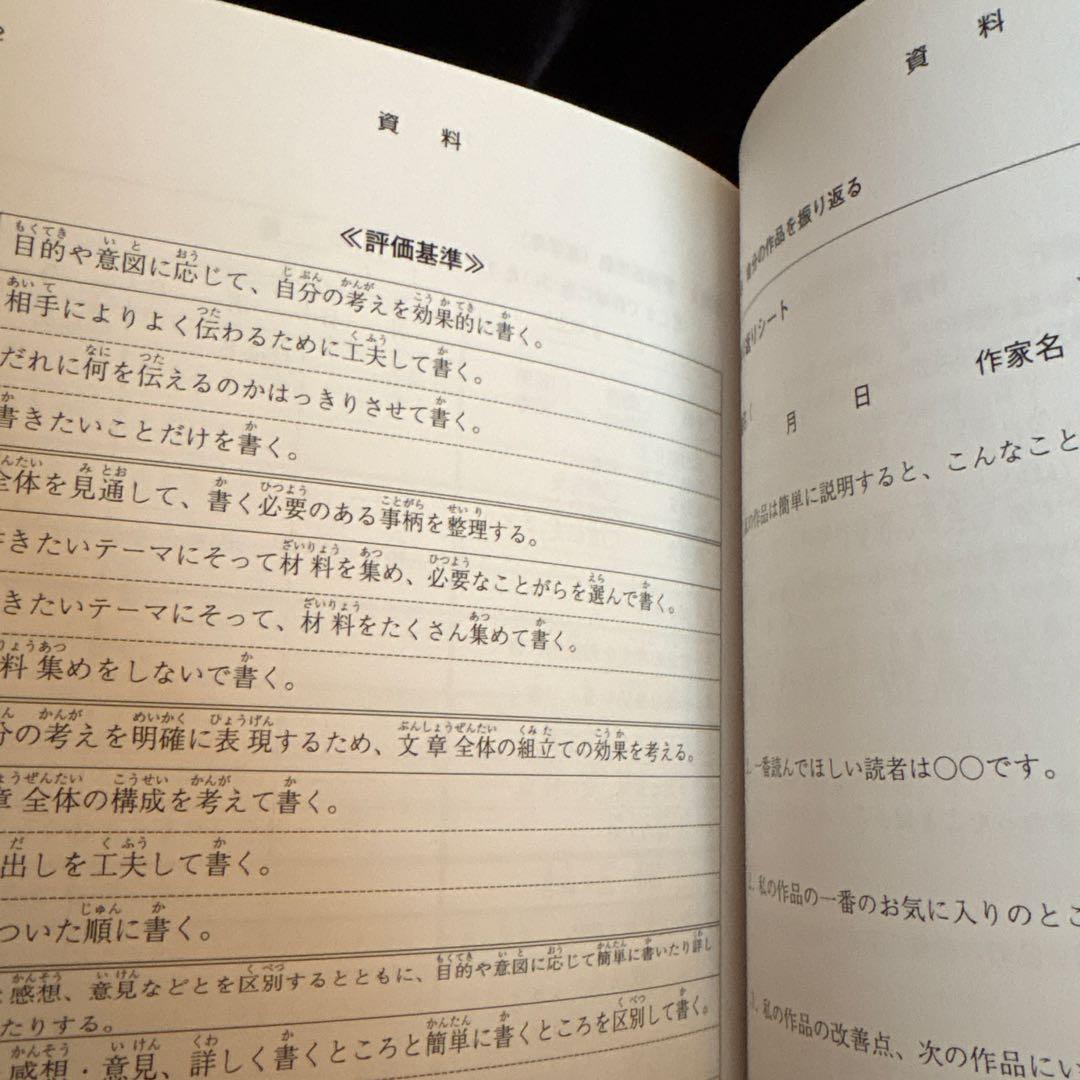 資 料
≪評価基準≫
目的や意図に応じて、自分の考えを効果的に書く。
相手によりよく伝わるために工夫して書く。
だれに何を伝えるのかはっきりさせて書く。
書きたいことだけを書く。
全体を見通して、書く必要のある事柄を整理する。
きたいテーマにそって材料を集め、必要なことがらを選んで書く。
きたいテーマにそって、材料をたくさん集めて書く。
料集めをしないで書く。
分の考えを明確に表現するため、文章全体の組立ての効果を考える。
章全体の構成を考えて書く。
出しを工夫して書く。
ついた順に書く。
感想、意見などとを区別するとともに、目的や意図に応じて簡単に書いたり詳し
たりする。
感想・意見、詳しく書くところと簡単に書くところを区別して書く。
資 料
自分の作品を振り返る
返りシート
月 日 作家名
私の作品は簡単に説明すると、こんなこと
一番読んでほしい読者は〇〇です。
私の作品の一番のお気に入りのとこ
私の作品の改善点、次の作品にい